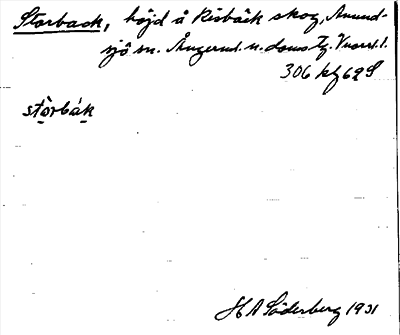 Storback, höjd å Risbäck skog, Anund-
sjö sn. Ångerml. n. doms. Tg.
306 kf 69 S
stòrbák
H A Söderberg 1931